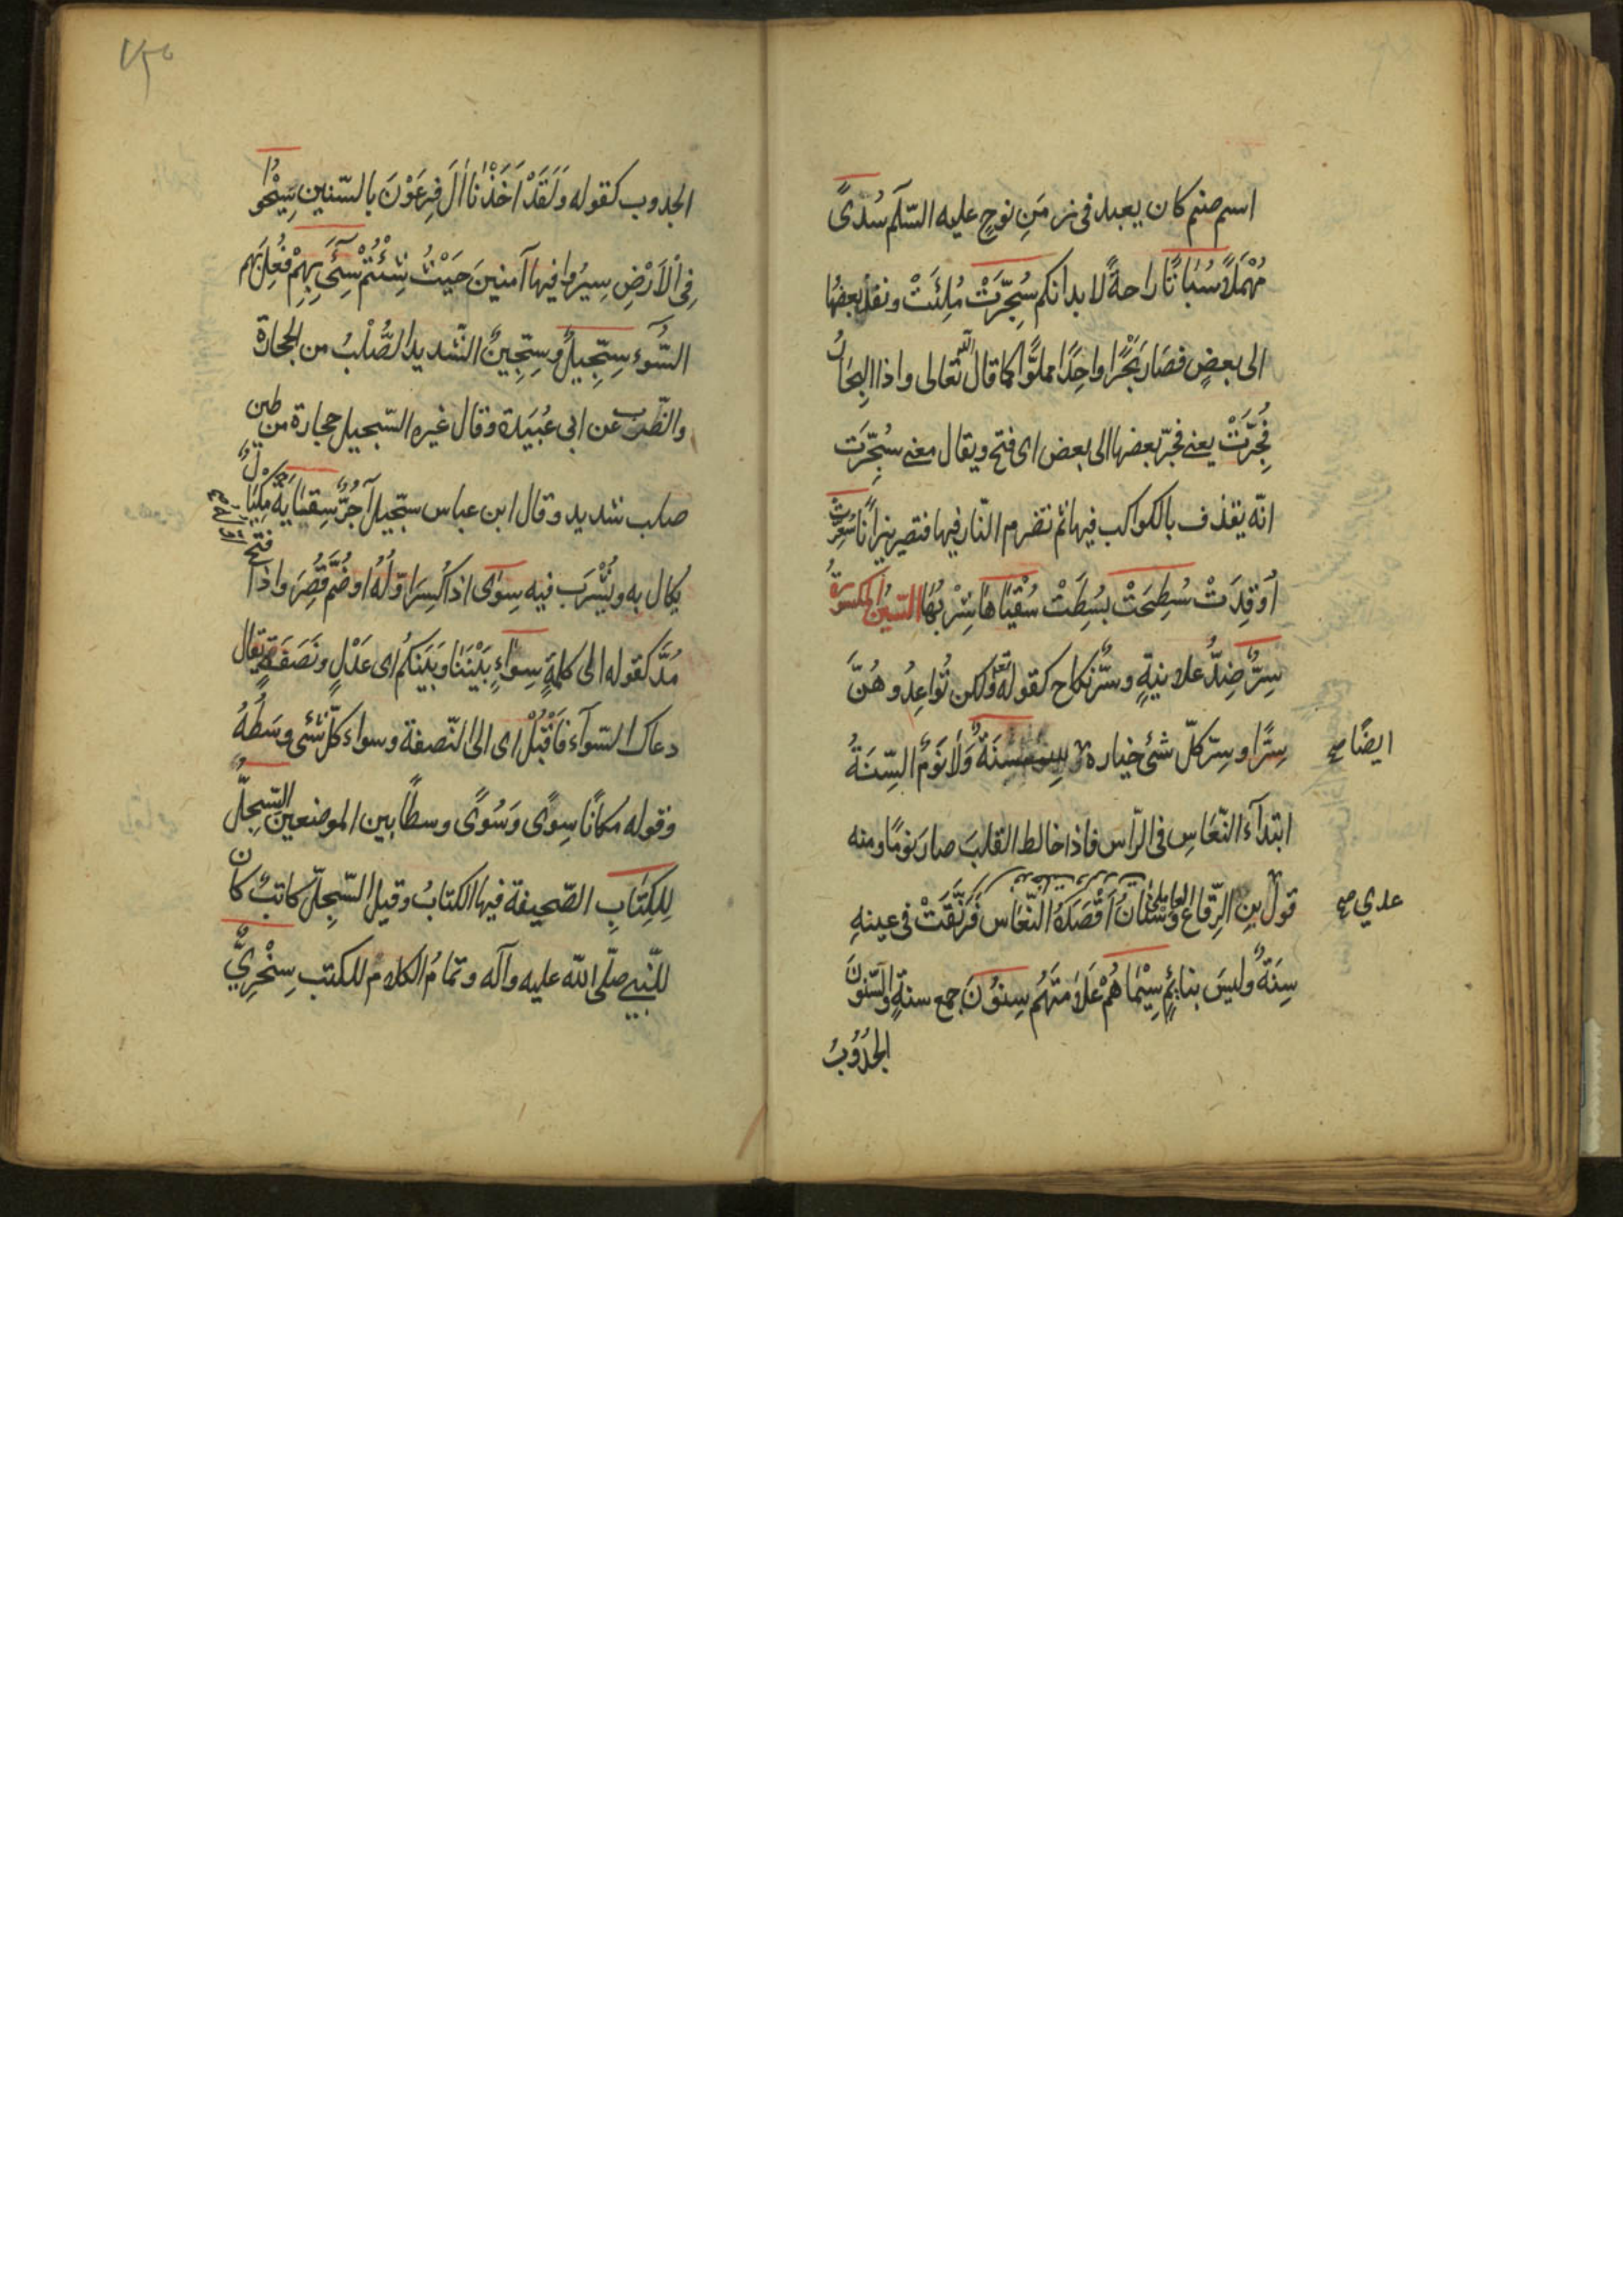 اسم صنم كان يعبد فى زمَنِ نوحٍ عليه السّلم سُدىً
مُهْمَلًا سُبَاتًا راحةً لا بدانكم سُجِّرَتْ مُلِئَتْ ونفذ بعضُها
الى بعضٍ فصَار بَحْرًا واحِدًا مملوًّا كما قال الله تعالى واذا البِحَارُ
فُجِّرَتْ يعنى فجّر بعضها الى بعض اى فتح ويقال معنى سُجِّرَت
انّه يقذف بالكواكب فيها ثم تضرم النّار فيها فتصير نِيرانًا سُعِّرَتْ
اُوْقِدَتْ سُطِحَتْ بسُطِتْ سُقْيَاهَا شِرْبُهَا السّينُ المكسورةُ
سِرٌّ ضِدُّ علانيةٍ وسّرٌ نكاح كقوله تعالى ولكن تُواعِدُوهُنَّ
سِرًّا وسِرّ كلّ شئ خياره لا سِنَةٌ وَلَا نَوْمٌ السِّنَةُ
ايضًا صح
ابتدآء النّعَاسِ فى الرّاس فاذا خالط القلبَ صارَ نومًا ومنه
قولُ بنِ الرِّقاع العاملىّ وَسْنَانُ اَقْصَدَهُ النّعَاس فَرَنَّقَتْ فى عينهِ
عدي صح
سِنَةٌ وليسَ بنائمٍ سِيْمَاهُمْ عَلَامَتَهُم سِنوُنَ جمع سنةٍ والسّنُونَ
الجُدُوْبُ
٧٥
الجدوب كقوله وَلَقَدْ اَخَذْنَا اٰلَ فِرعَوْنَ بالسّنين سِيْحُوا
فِى الْاَرْضِ سِيرُوا فيها آمنينَ حَيْثُ شِئْتُمْ سِٓىءَ بِهِمْ فُعِلَ بَهِم
السُّوٓء سِجّيلٌ وسِجّينٌ الشّديد الصُّلْبُ من الحجارة
والضّرب عن ابى عُبَيَدة وقال غيره السّجيل حجارة من طين
صلب شديد وقال ابن عباس سِجّيل آجُرٌّ سِقَايَة مِكْيَالٌ
يُكال به ويُشْرَبُ فيه سِوٰى اذا كُسِرَ اوّلُهُ او ضُمَّ قُصِرَ واذا فتح
مُدَّ كقوله الى كلمةٍ سوآءٍ بَيْنَنَا وبَيَنكُم اى عَدْلٍ ونَصَفَةٍ يقال
دعاك السّوآء فَاَقْبِلْ اى الى النّصفة وسواء كلّ شئى وسَطُهُ
وقوله مكانًا سِوًى وَسُوًى وسطًا بين الموضعين السّجِلِّ
لِلكِتَابِ الصّحيفة فيها الكتابُ وقيل السّجِلّ كاتبٌ كان
للنّبى صلّى اللّه عليه وآله وتمامُ الكلام للكتب سِخْرِيٌّ